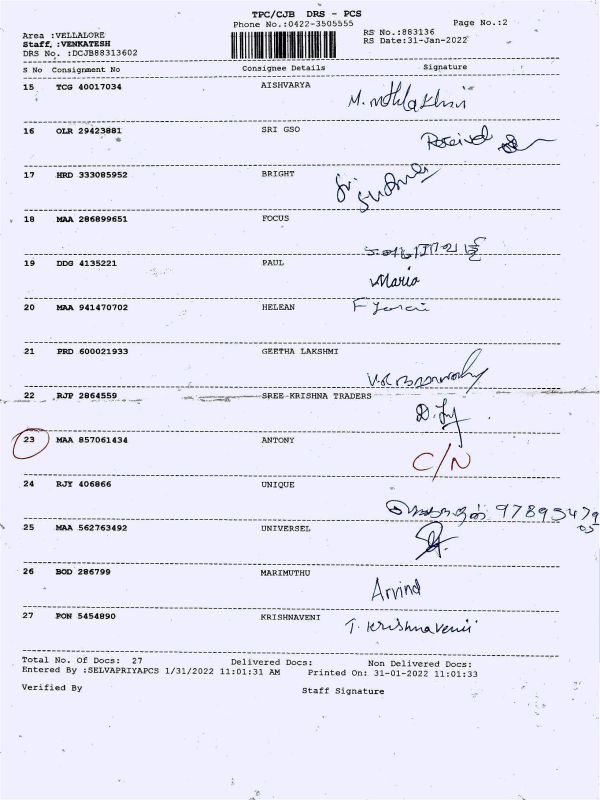 TPC/CJB DRS - PCS
Phone No.:0422-3505555
Page No.:2
Area :VELLALORE
RS No.:883136
Staff.:VENKATESH
RS Date:31-Jan-2022
DRS No. :DCJB88313602
S No Consignment No Consignee Details Signature
15 TCG 40017034 AISHVARYA
16 OLR 29423881 SRI GSO
Received
17 HRD 333085952 BRIGHT
Sri
18 MAA 286899651 FOCUS
19 DDG 4135221 PAUL
Maria
20 MAA 941470702 HELEAN
21 PRD 600021933 GEETHA LAKSHMI
22 RJP 2864559 SREE KRISHNA TRADERS
23 MAA 857061434 ANTONY
C/N
24 RJY 406866 UNIQUE
25 MAA 562763492 UNIVERSEL
26 BOD 286799 MARIMUTHU
Arvind
27 PON 5454890 KRISHNAVENI
T. Krishnavenii
Total No. Of Docs: 27 Delivered Docs: Non Delivered Docs:
Entered By :SELVAPRIYAPCS 1/31/2022 11:01:31 AM Printed On: 31-01-2022 11:01:33
Verified By Staff Signature